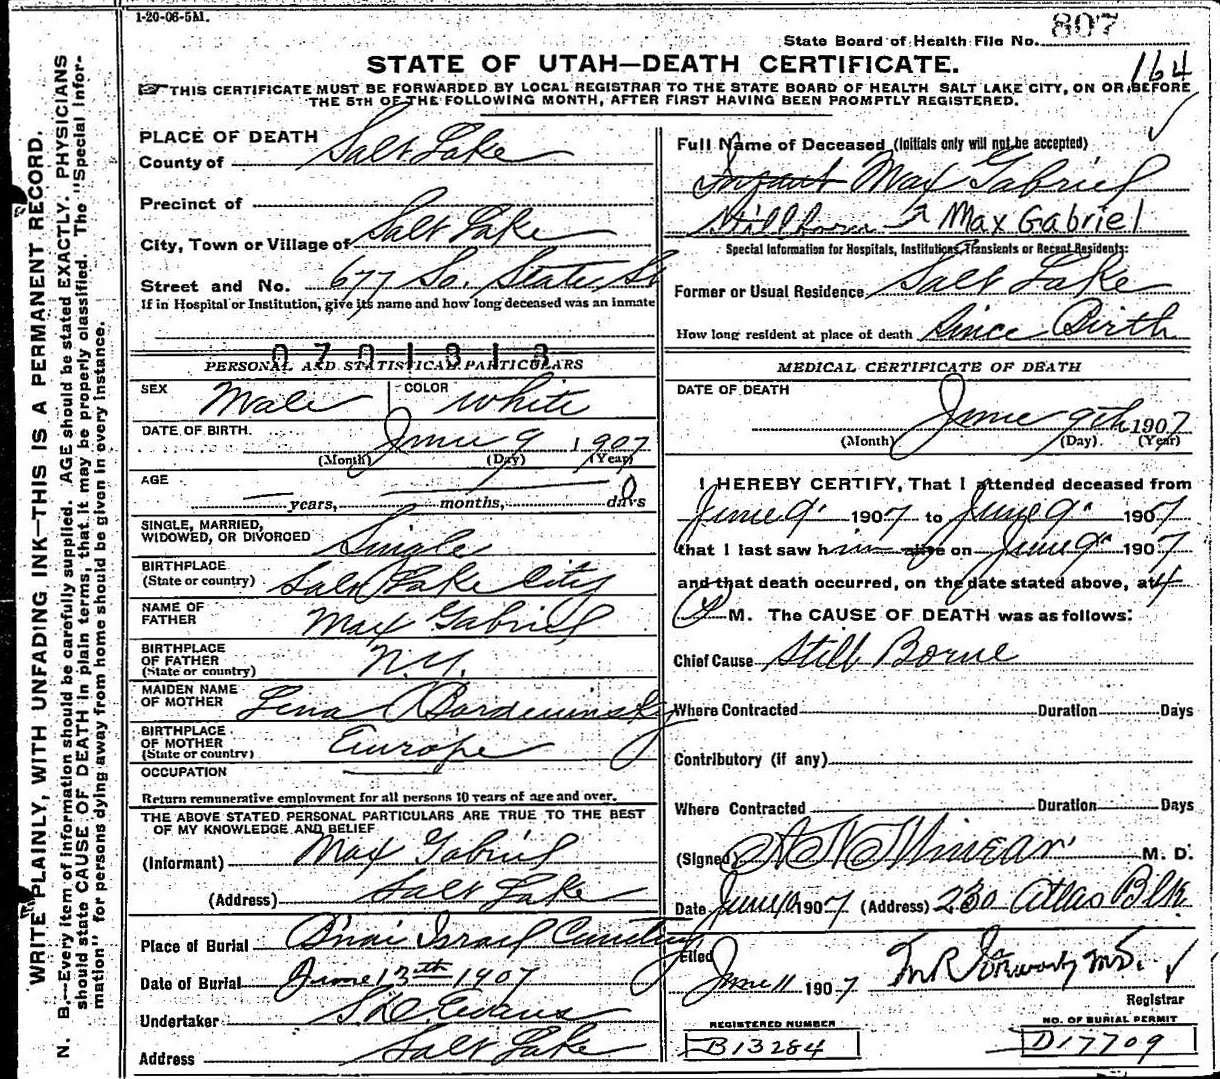 1-20-06-5M.
807
State Board of Health File No.
STATE OF UTAH—DEATH CERTIFICATE.
164
THIS CERTIFICATE MUST BE FORWARDED BY LOCAL REGISTRAR TO THE STATE BOARD OF HEALTH SALT LAKE CITY, ON OR BEFORE
THE 5TH OF THE FOLLOWING MONTH, AFTER FIRST HAVING BEEN PROMPTLY REGISTERED.
WRITE PLAINLY, WITH UNFADING INK—THIS IS A PERMANENT RECORD.
N. B.—Every item of information should be carefully supplied. AGE should be stated EXACTLY. PHYSICIANS
should state CAUSE OF DEATH in plain terms, that it may be properly classified. The "Special Infor-
mation" for persons dying away from home should be given in every instance.
PLACE OF DEATH
County of Salt Lake
Precinct of
City, Town or Village of Salt Lake
Street and No. 677 So. State St
If in Hospital or Institution, give its name and how long deceased was an inmate
0701313
PERSONAL AND STATISTICAL PARTICULARS
SEX Male COLOR White
DATE OF BIRTH. June 9 1907
(Month) (Day) (Year)
AGE
years, months, 0 days
SINGLE, MARRIED,
WIDOWED, OR DIVORCED Single
BIRTHPLACE
(State or country) Salt Lake City
NAME OF
FATHER Max Gabriel
BIRTHPLACE
OF FATHER
(State or country) N.Y.
MAIDEN NAME
OF MOTHER Lena
BIRTHPLACE
OF MOTHER
(State or country) Europe
OCCUPATION
Return remunerative employment for all persons 10 years of age and over.
THE ABOVE STATED PERSONAL PARTICULARS ARE TRUE TO THE BEST
OF MY KNOWLEDGE AND BELIEF
(Informant) Max Gabriel
(Address) Salt Lake
Place of Burial B'nai Israel Cemetery
Date of Burial June 13th 1907
Undertaker S. D. Evans
Address Salt Lake
Full Name of Deceased (Initials only will not be accepted)
Infant Max Gabriel
Stillborn Max Gabriel
Special Information for Hospitals, Institutions, Transients or Recent Residents:
Former or Usual Residence Salt Lake
How long resident at place of death Since Birth
MEDICAL CERTIFICATE OF DEATH
DATE OF DEATH
June 9th 1907
(Month) (Day) (Year)
I HEREBY CERTIFY, That I attended deceased from
June 9" 1907 to June 9" 1907
that I last saw him alive on June 9" 1907
and that death occurred, on the date stated above, at 4
P M. The CAUSE OF DEATH was as follows:
Chief Cause Still Borne
Where Contracted Duration Days
Contributory (if any)
Where Contracted Duration Days
(Signed) Minear M. D.
Date June 10 1907 (Address) 230 Atlas Blk
Filed
June 11 1907 M.D.
Registrar
REGISTERED NUMBER
B13284
NO. OF BURIAL PERMIT
D17709